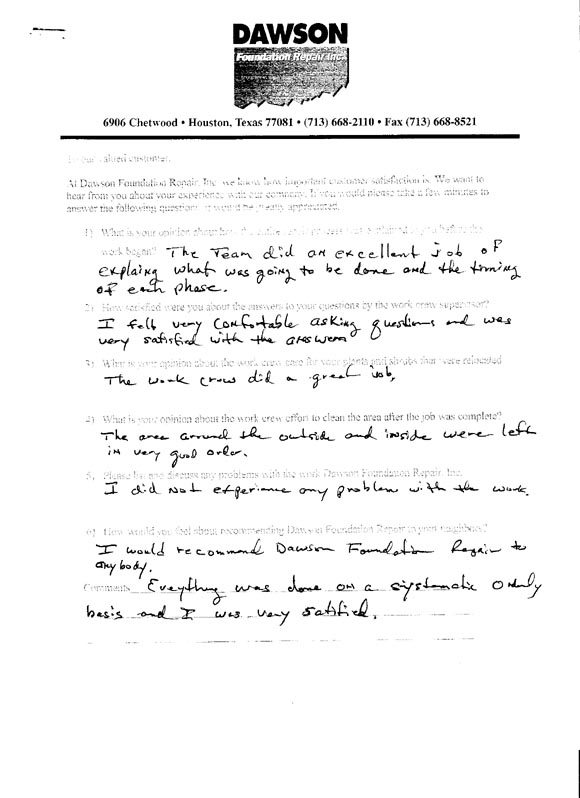 DAWSON
Foundation Repair Inc.
6906 Chetwood • Houston, Texas 77081 • (713) 668-2110 • Fax (713) 668-8521
To our valued customer,
At Dawson Foundation Repair, Inc. we know how important customer satisfaction is. We want to
hear from you about your experience with our company. If you would please take a few minutes to
answer the following questions it would be greatly appreciated.
1) What is your opinion about how the entire process was explained to you before the
work began? The Team did an excellent job of
explaing what was going to be done and the timing
of each phase.
2) How satisfied were you about the answers to your questions by the work crew supervisor?
I felt very comfortable asking questions and was
very satisfied with the answers
3) What is your opinion about the work crew care for your plants and shrubs that were relocated
The work crew did a great job.
4) What is your opinion about the work crew effort to clean the area after the job was complete?
The area around the outside and inside were left
in very good order.
5. Please list and discuss any problems with the work Dawson Foundation Repair, Inc.
I did not experiance any problem with the work.
6) How would you feel about recommending Dawson Foundation Repair to your neighbors?
I would recommend Dawson Foundation Repair to
any body.
Comments Everything was done on a systematic orderly
basis and I was very satified.